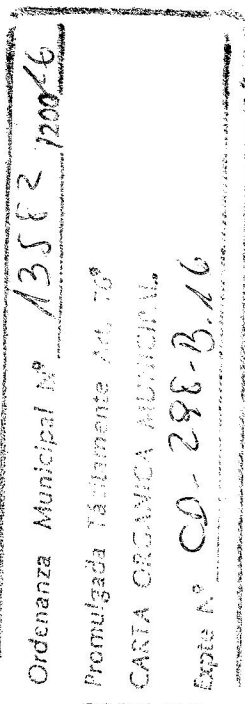 Ordenanza Municipal Nº 13582 /200 16
Promulgada Tácitamente Art. 76º
CARTA ORGANICA MUNICIPAL
Expte Nº CD-298-B-16